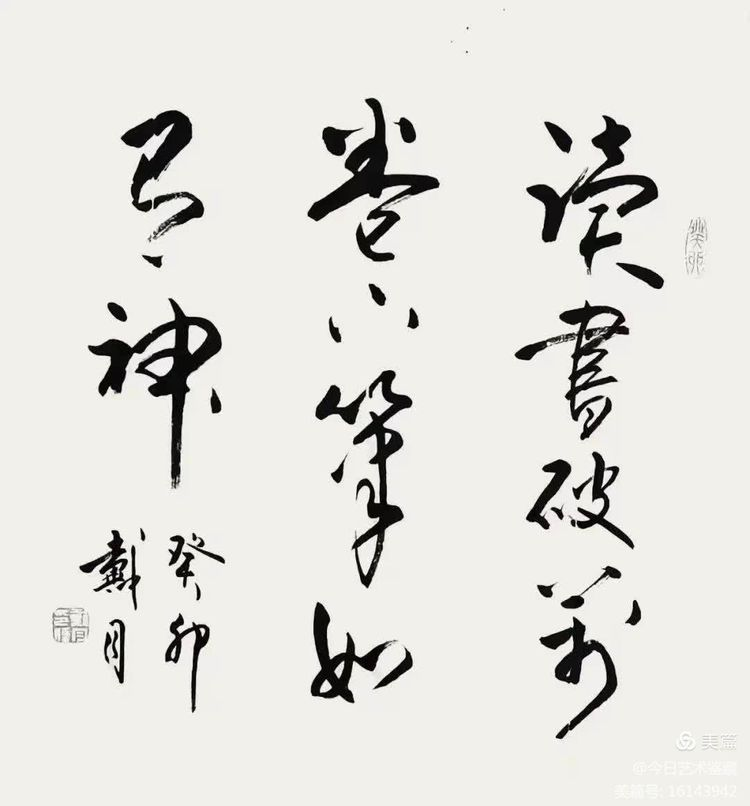 读书破万
卷下笔如
有神
癸卯
戴月
癸卯
美篇
@今日艺术鉴藏
美篇号: 16143942